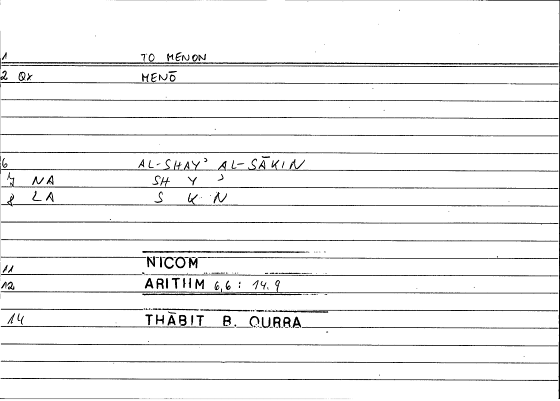 1 TO MENON
2 QX MENŌ
6 AL-SHAYʾ AL-SĀKIN
7 NA SH Y ʾ
8 LA S K N
11 NICOM
12 ARITHM 6,6 : 14.9
14 THĀBIT B. QURRA